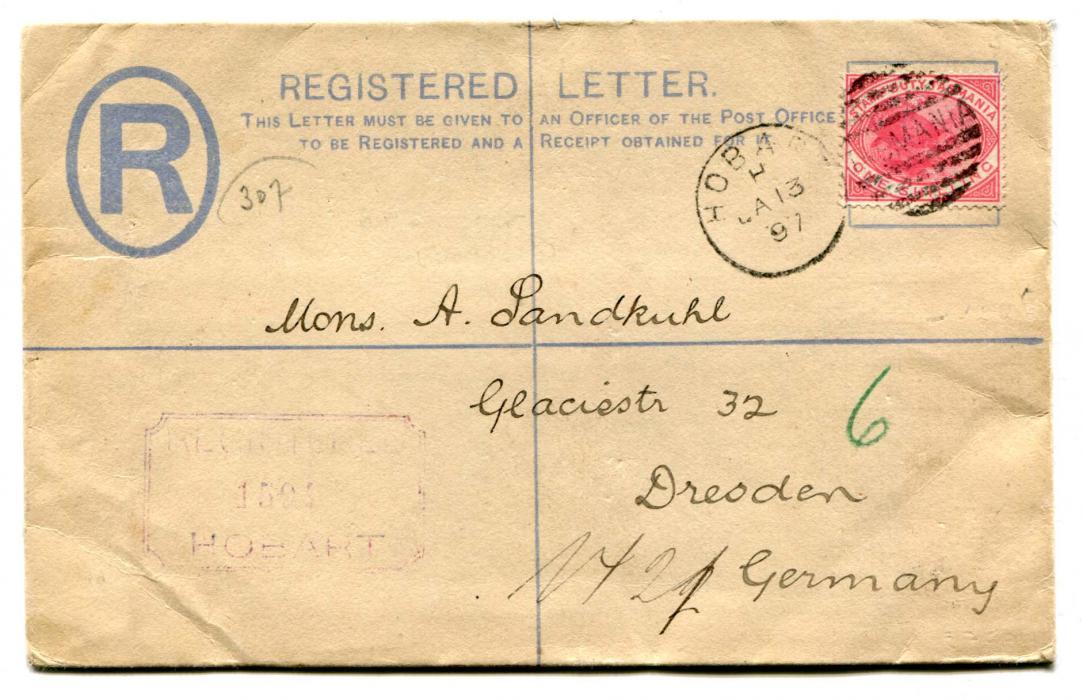 REGISTERED LETTER.
THIS LETTER MUST BE GIVEN TO AN OFFICER OF THE POST OFFICE
TO BE REGISTERED AND A RECEIPT OBTAINED FOR IT.
R
307
STAMP DUTY TASMANIA
ONE SHILLING
HOBART
1
JA 13
97
Mons. A. Sandkuhl
Glacisstr 32
6
Dresden
Germany
REGISTERED
HOBART